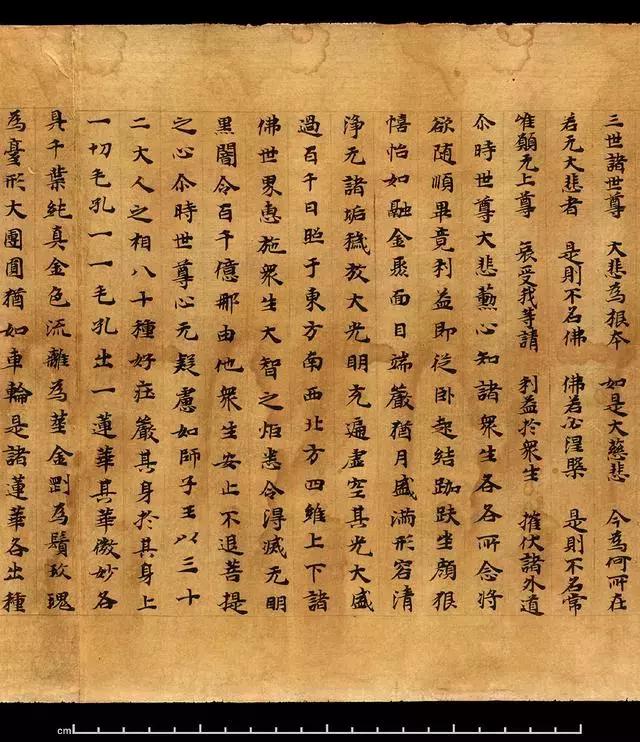 三世諸世尊 大悲為根本 如是大慈悲 今為何所在
若无大悲者 是則不名佛 佛若必涅槃 是則不名常
唯願无上尊 哀受我等請 利益於衆生 摧伏諸外道
尒時世尊大悲薰心知諸衆生各各所念將
欲随順畢竟利益即從卧起結跏趺坐顔貌
憘怡如融金聚面目端嚴猶月盛滿形容清
淨无諸垢穢放大光明充遍虛空其光大盛
過百千日照于東方南西北方四維上下諸
佛世界惠施衆生大智之炬悉令得滅无明
黑闇令百千億那由他衆生安止不退菩提
之心尒時世尊心无疑慮如師子王以三十
二大人之相八十種好莊嚴其身於其身上
一切毛孔一一毛孔出一蓮華其華微妙各
具千葉純真金色流離為莖金剛為鬚玫瑰
為臺形大團圓猶如車輪是諸蓮華各出種
cm